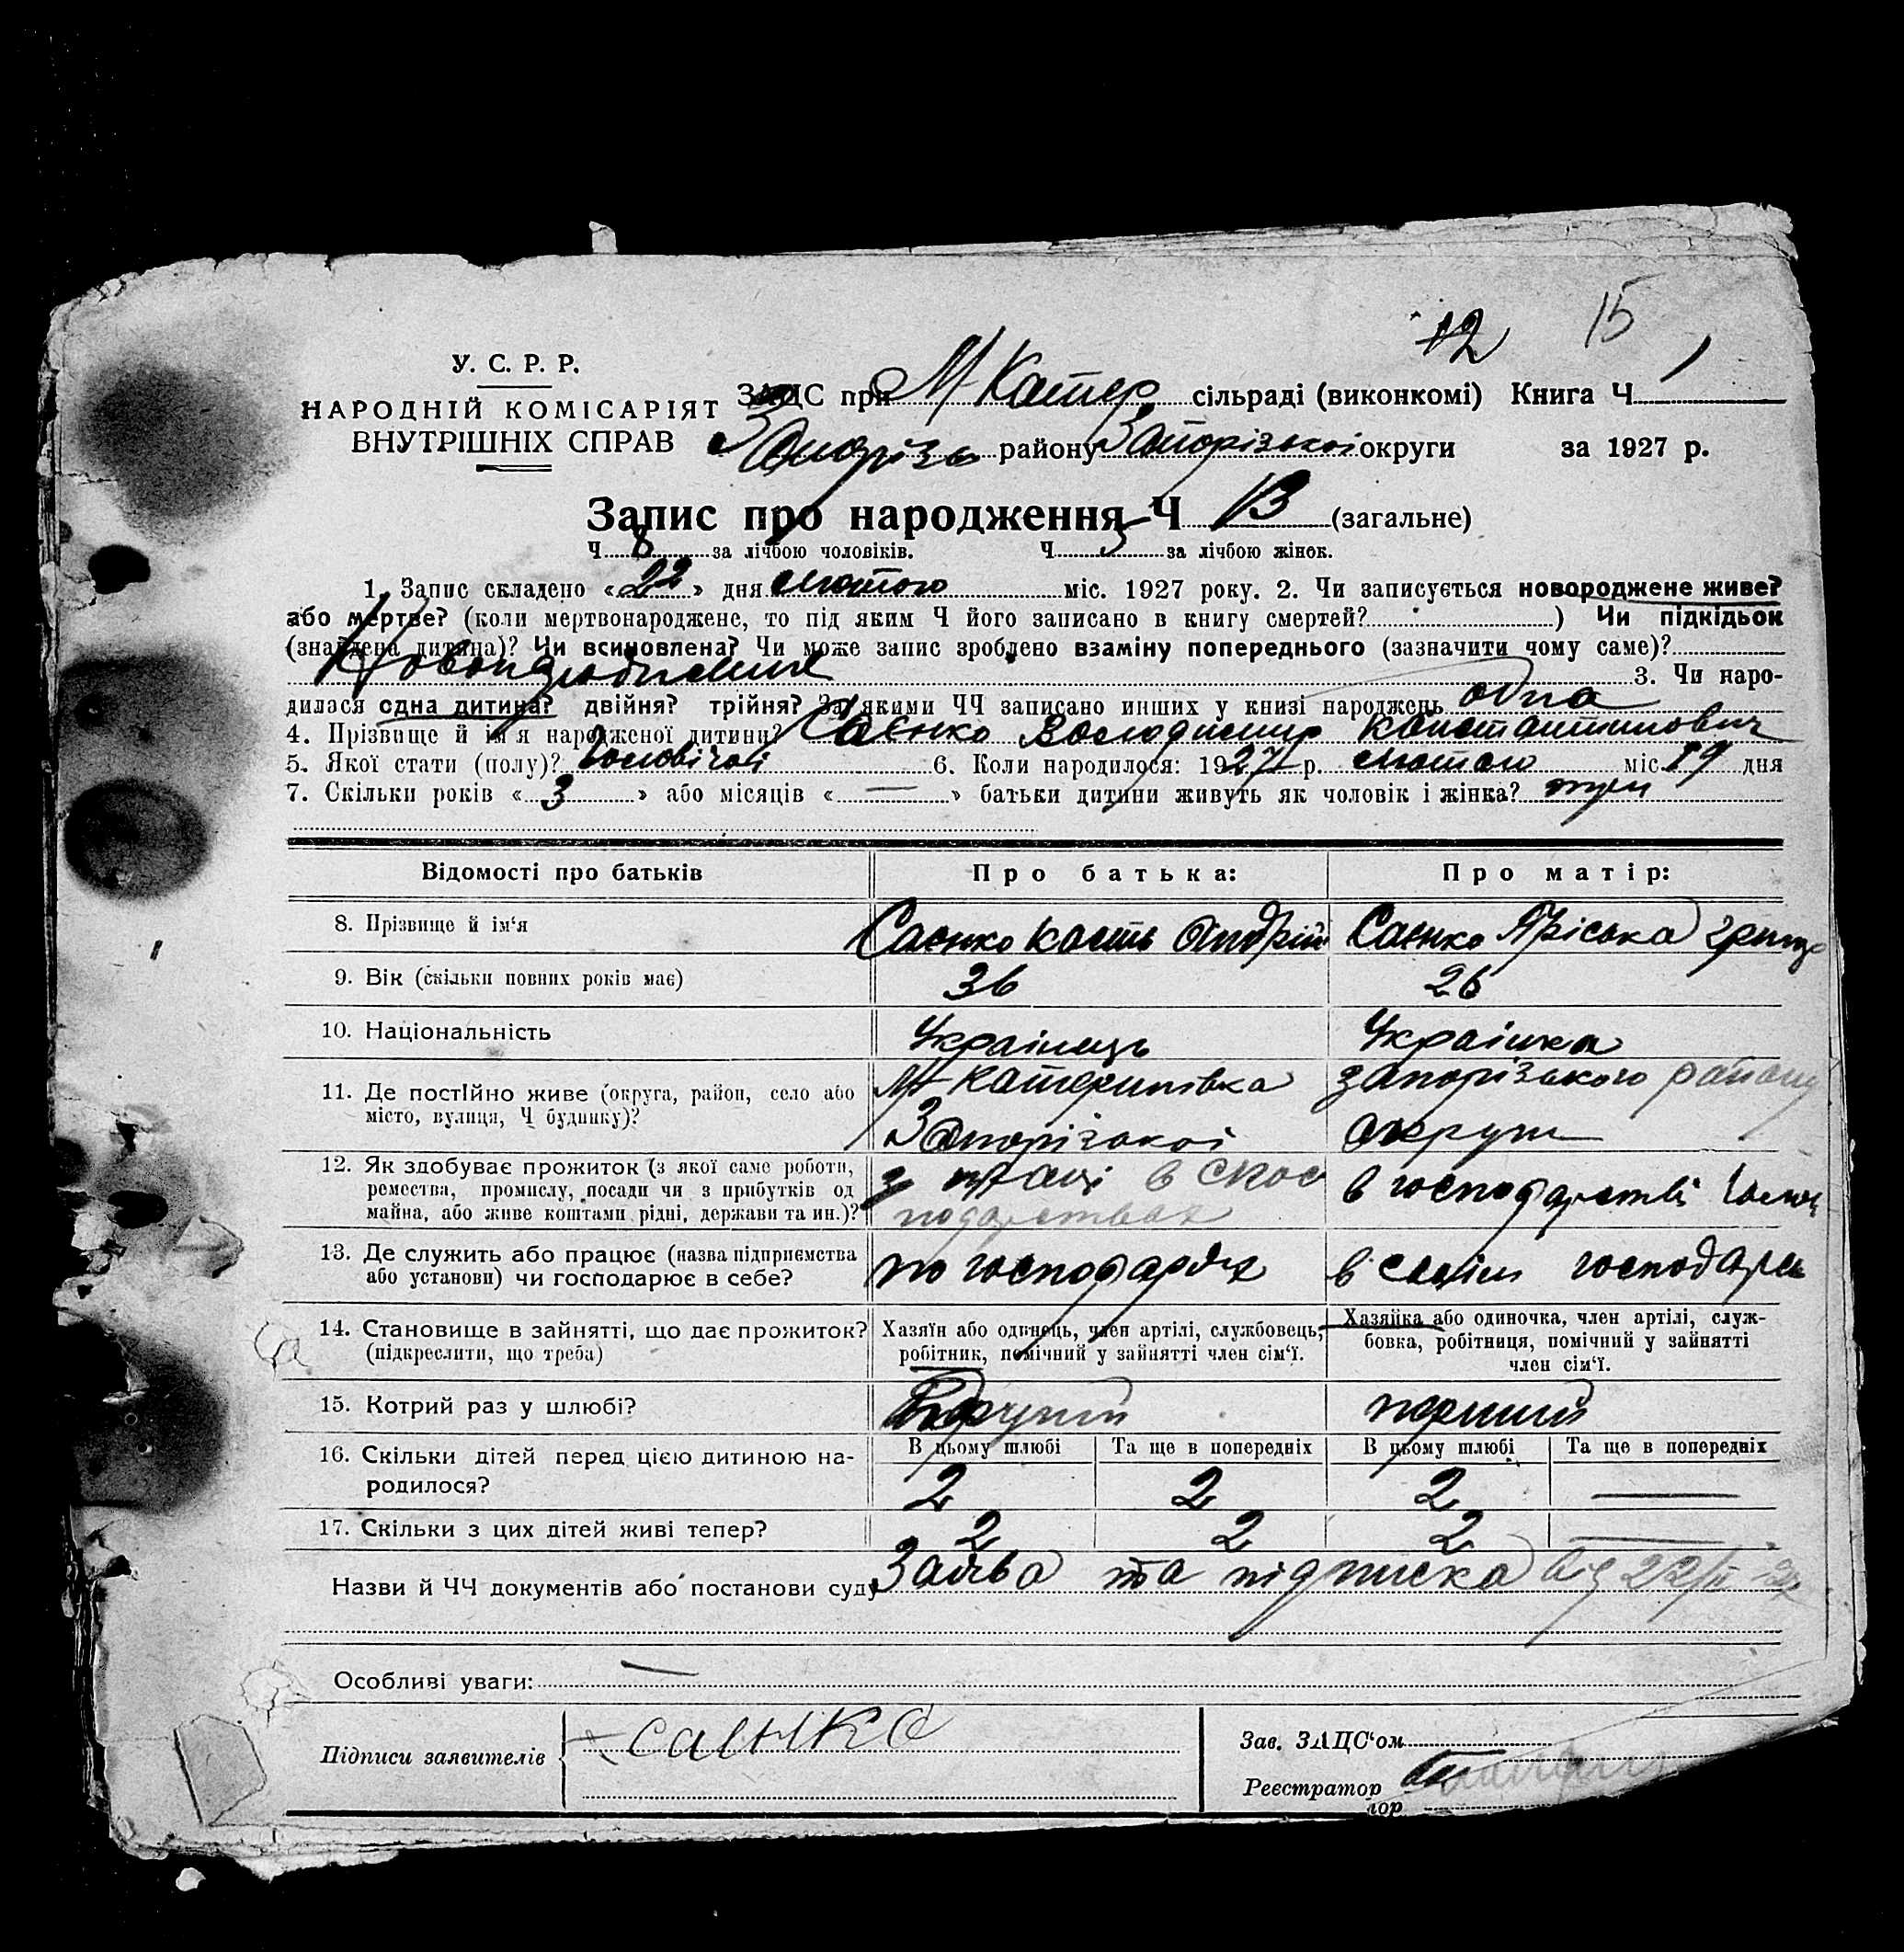 12 15
У. С. Р. Р.
НАРОДНІЙ КОМІСАРІЯТ
ВНУТРІШНІХ СПРАВ
ЗАДС при М-Катер сільраді (виконкомі) Книга Ч 1
району Запорізької округи за 1927 р.
Запис про народження Ч 13 (загальне)
Ч 8 за лічбою чоловіків. Ч 5 за лічбою жінок.
1. Запис складено «22» дня лютого міс. 1927 року. 2. Чи записується новороджене живе?
або мертве? (коли мертвонароджене, то під яким Ч його записано в книгу смертей? ) Чи підкідьок
(знайдена дитина)? Чи всиновлена? Чи може запис зроблено взаміну попереднього (зазначити чому саме)?
3. Чи наро-
дилася одна дитина? двійня? трійня? За якими ЧЧ записано инших у книзі народжень одна
4. Прізвище й ім'я народженої дитини? Саєнко Володимир Константинович
5. Якої стати (полу)? чоловічої 6. Коли народилося: 1927 р. лютого міс. 19 дня
7. Скільки років «3» або місяців «—» батьки дитини живуть як чоловік і жінка? три
Відомості про батьків Про батька: Про матір:
8. Прізвище й ім'я Саєнко Кость Андрій Саєнко Яріська
9. Вік (скільки повних років має) 36 26
10. Національність Українець Українка
11. Де постійно живе (округа, район, село або М-Катеринівка Запорізького району
місто, вулиця, Ч будинку)? Запорізької округи
12. Як здобуває прожиток (з якої саме роботи, з праці в
ремества, промислу, посади чи з прибутків од в господарстві
майна, або живе коштами рідні, держави та ин.)?
13. Де служить або працює (назва підприємства по господарях в своїм господарс
або установи) чи господарює в себе?
14. Становище в зайнятті, що дає прожиток? Хазяїн або одинець, член артілі, службовець, Хазяйка або одиночка, член артілі, служ-
(підкреслити, що треба) робітник, помічний у зайнятті член сім'ї. бовка, робітниця, помічний у зайнятті
член сім'ї.
15. Котрий раз у шлюбі? другий перший
16. Скільки дітей перед цією дитиною на- В цьому шлюбі Та ще в попередніх В цьому шлюбі Та ще в попередніх
родилося? 2 2 2 —
17. Скільки з цих дітей живі тепер? 2 2 2 —
Назви й ЧЧ документів або постанови суду Заява та підписка від 22/II-27
Особливі уваги: —
Підписи заявителів Саєнко
Зав. ЗАДС'ом
Реєстратор
тор